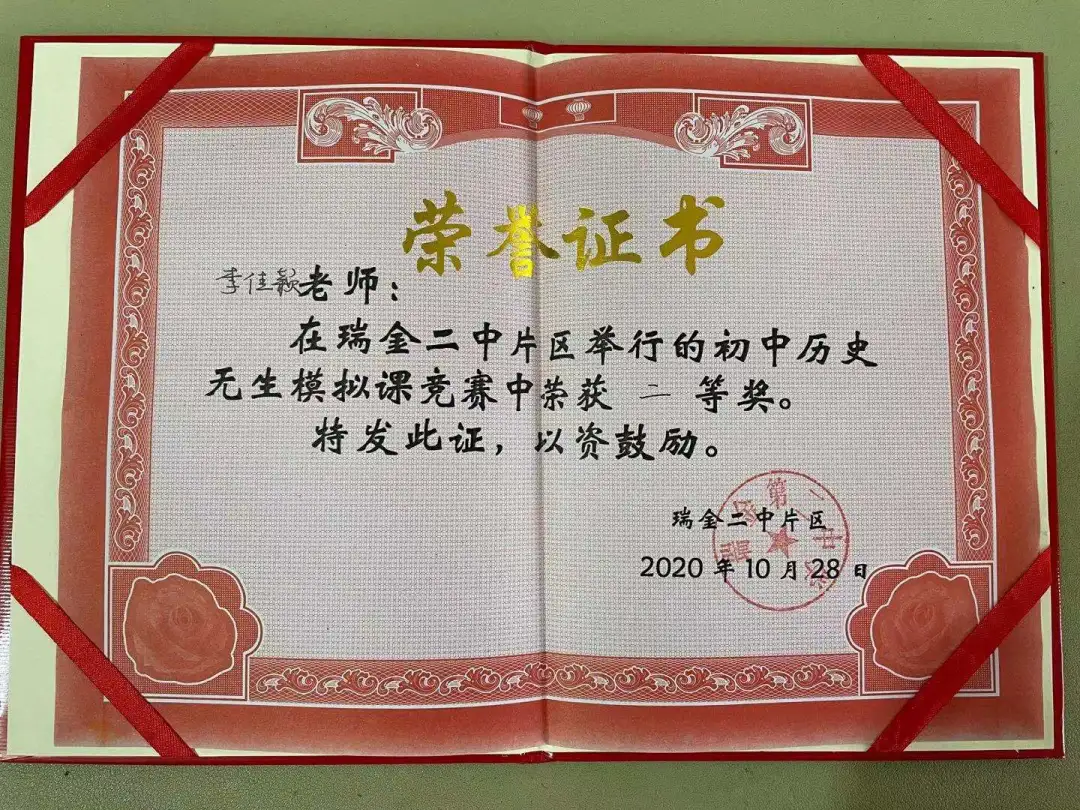 荣誉证书
李佳颖老师：
在瑞金二中片区举行的初中历史
无生模拟课竞赛中荣获 二 等奖。
特发此证，以资鼓励。
瑞金二中片区
2020 年 10 月 28 日